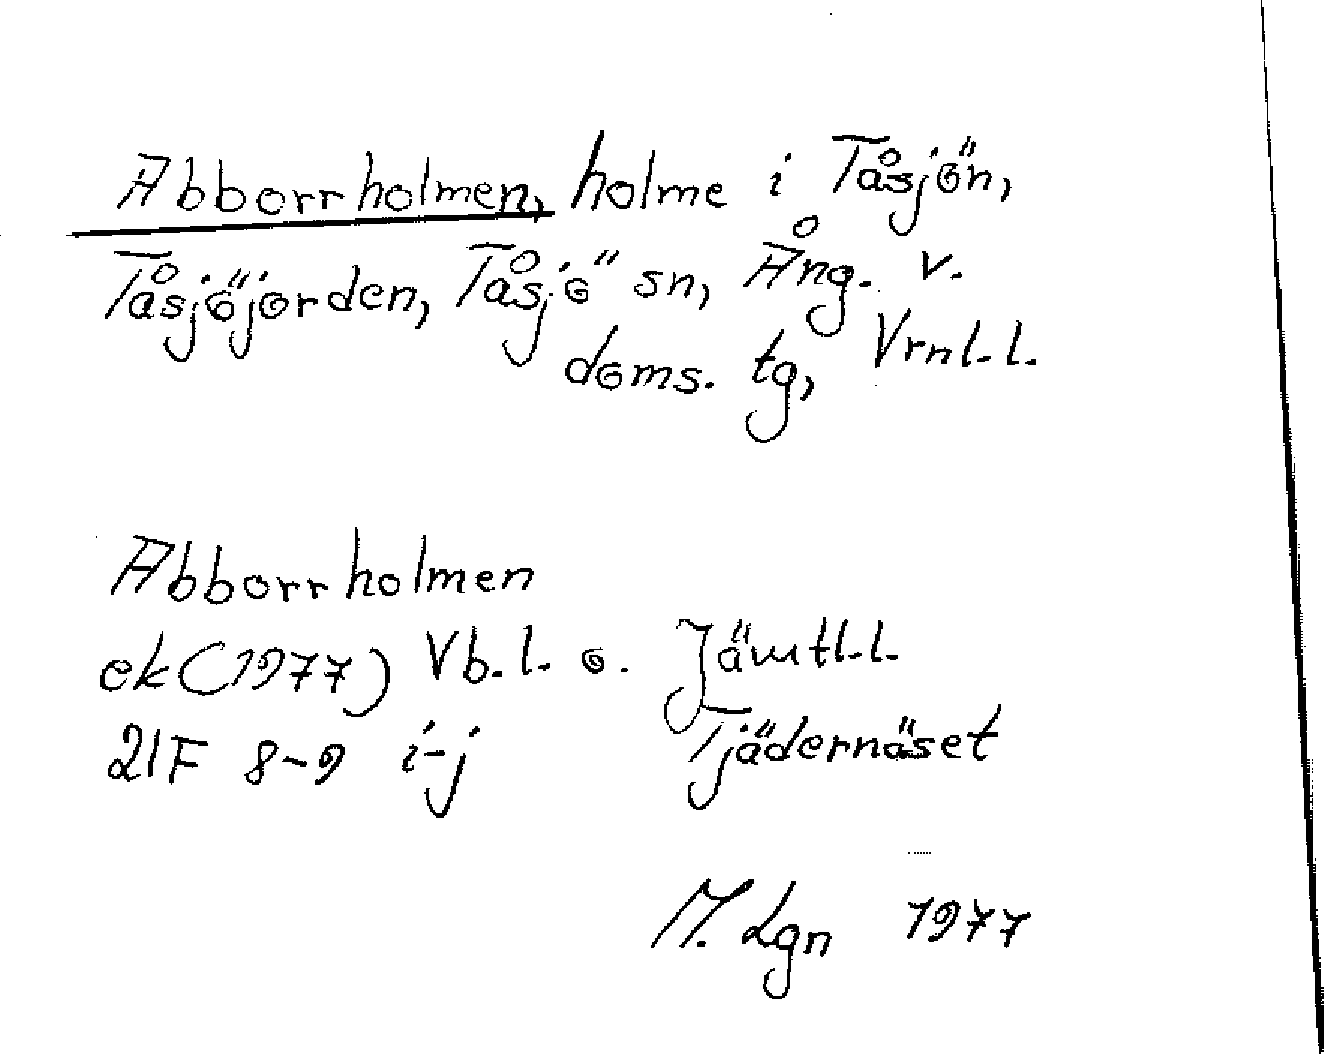 Abborrholmen, holme i Tåsjön,
Tåsjöjorden, Tåsjö sn, Ång. v.
doms. tg, Vrnl. l.
Abborrholmen
ek (1977) Vb. l. o. Jämtl. l.
21F 8-9 i-j Tjädernäset
M. Lgn 1977